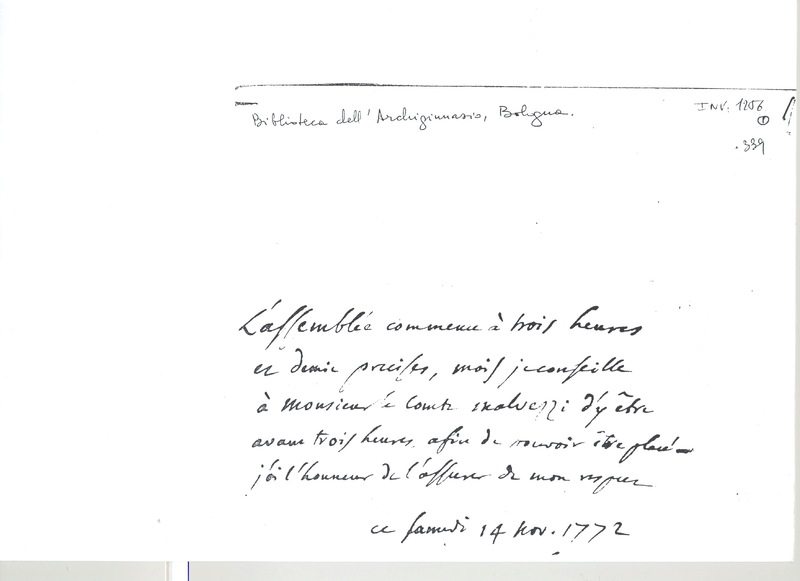 Biblioteca dell'Archiginnasio, Bologna.
INV. 1256
1
339
L'assemblée commence à trois heures
et demie precises, mais je conseille
à Monsieur le Comte Malvezzi d'y être
avant trois heures afin de pouvoir être placé_
j'ai l'honneur de l'assurer de mon respect
ce samedi 14 nov. 1772